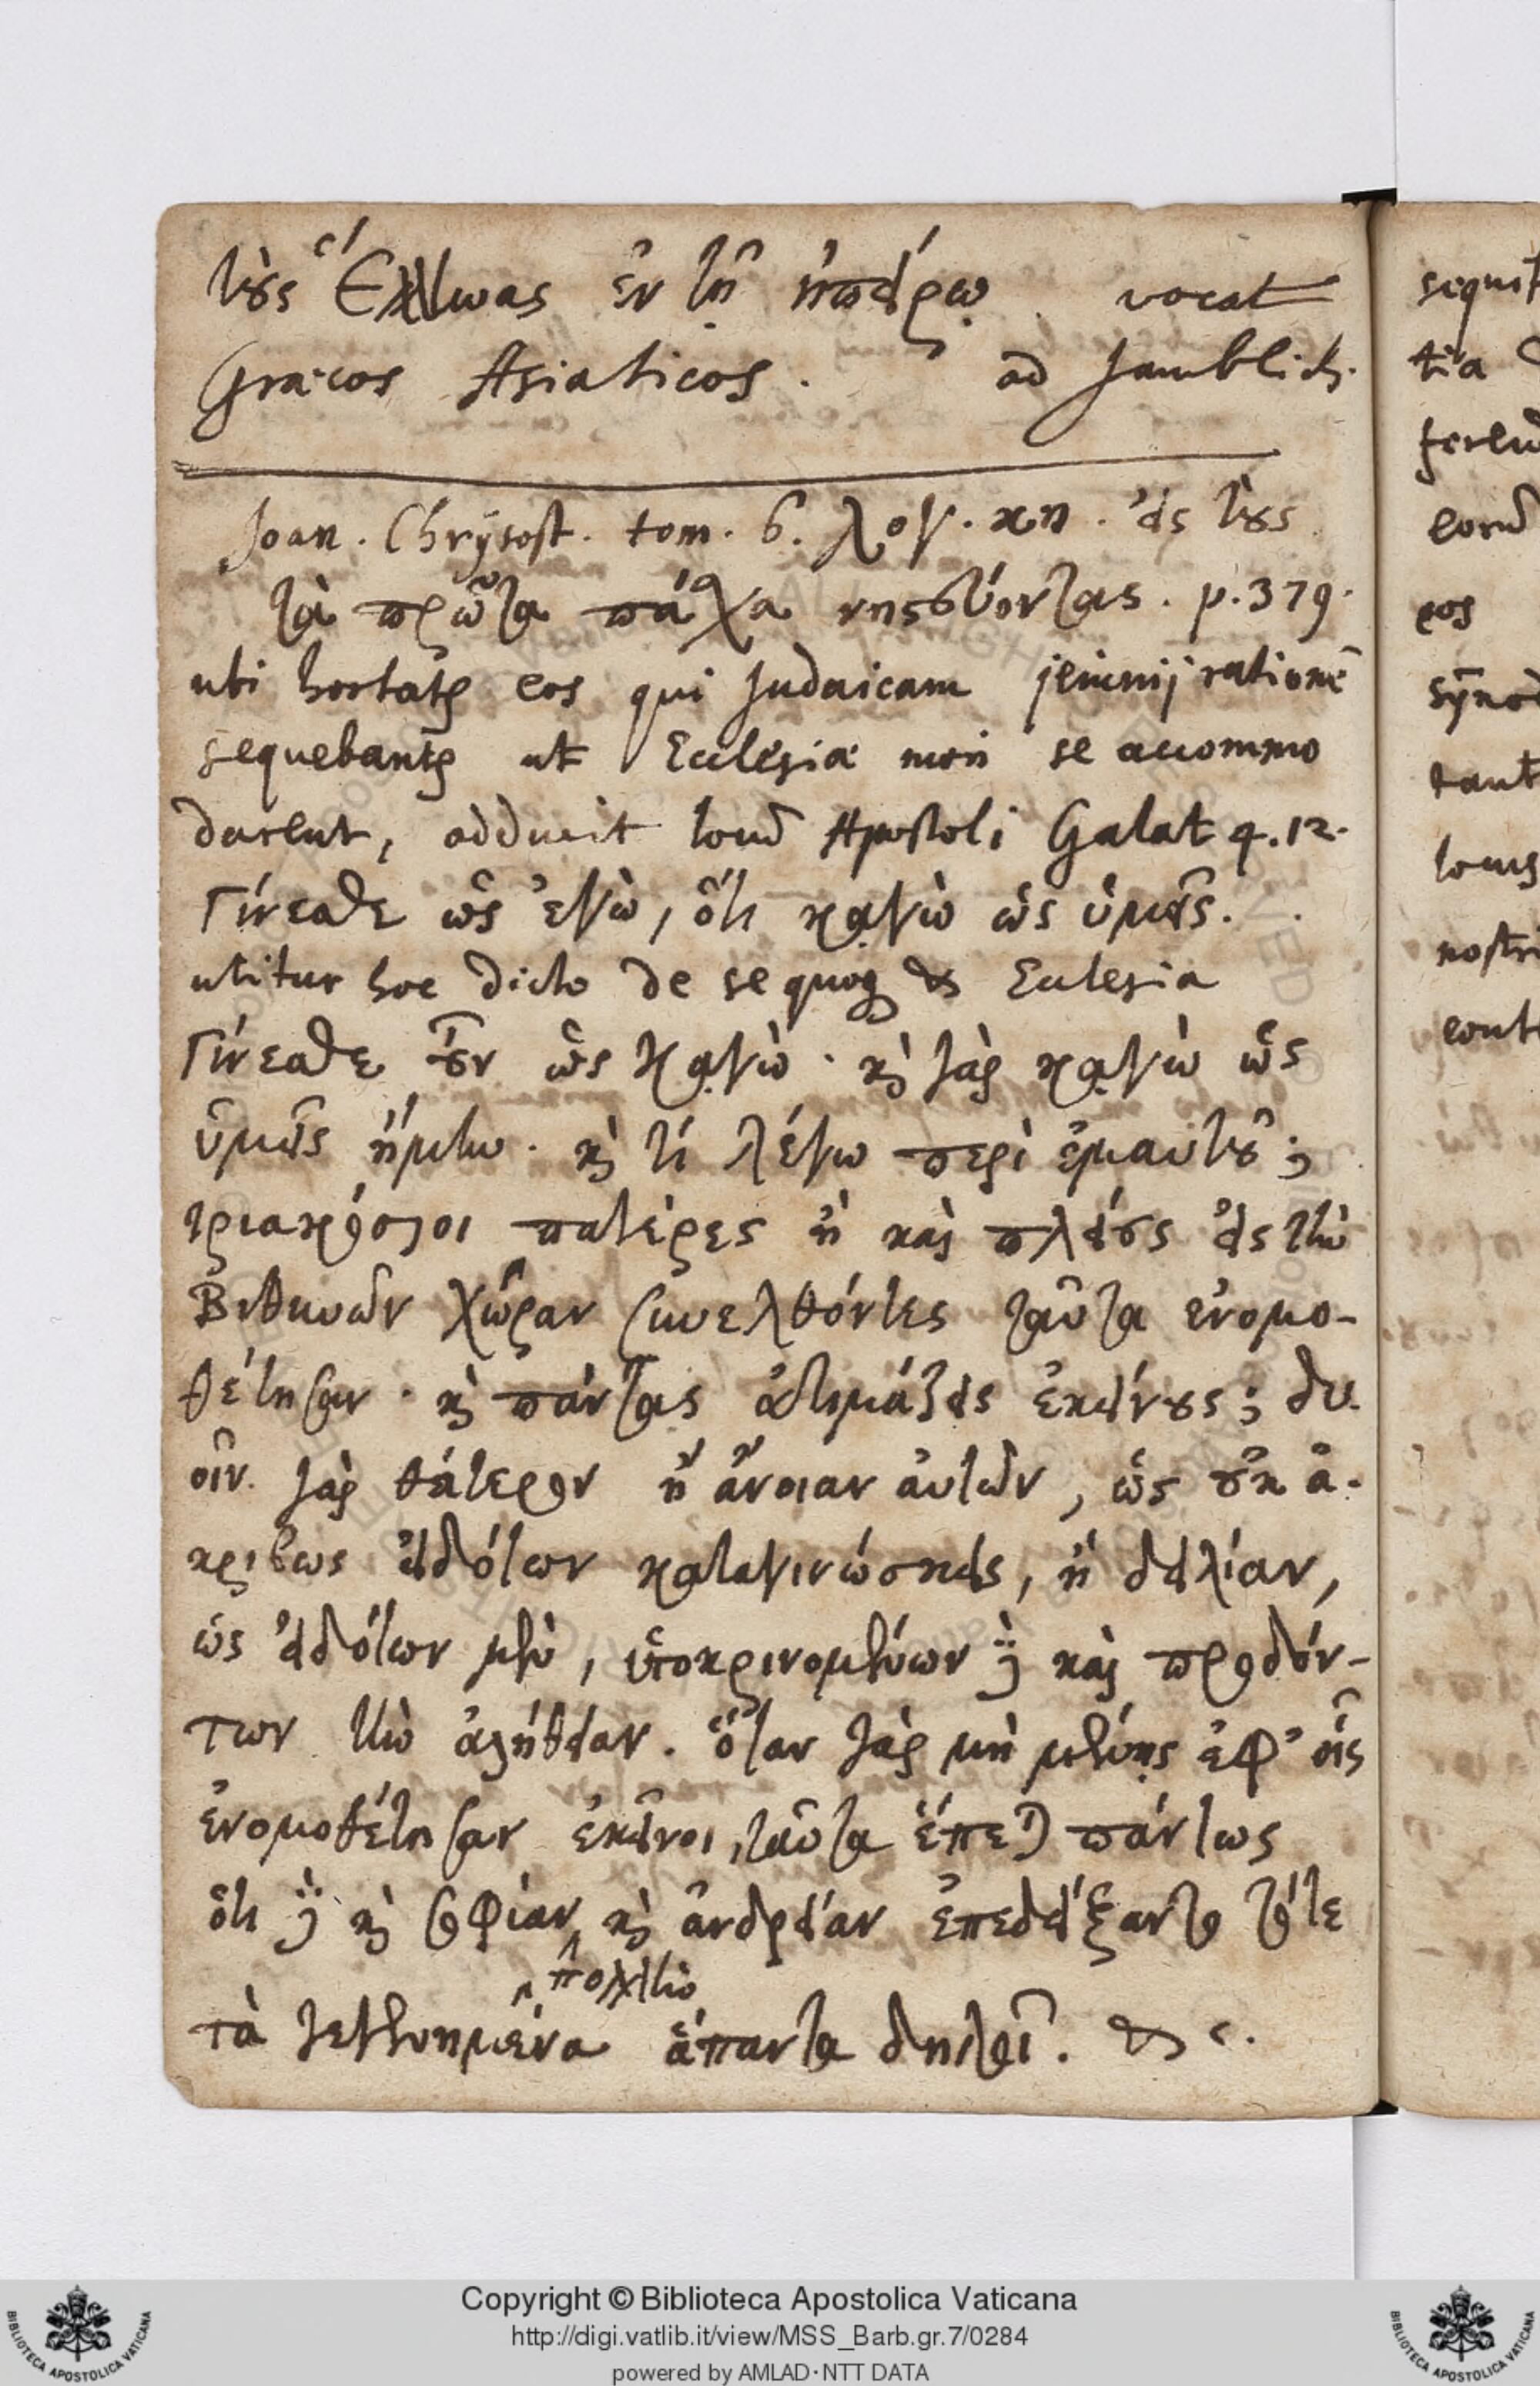 τοὺς Ἕλληνας ἐν τῇ ἠπείρῳ vocat
Græcos Asiaticos. ad Jamblich.
Joan. Chrysost. tom. 6. λογ. κη. εἰς τοὺς
τὰ πρῶτα πάσχα νηστεύοντας. p. 379.
ubi hortatr eos qui Judaicam jeiunij rationē
sequebantr ut Ecclesiæ mori se accommo
darent, adducit locū Apostoli Galat 4.12.
Γίνεσθε ὡς ἐγὼ, ὅτι κᾀγὼ ὡς ὑμεῖς.
utitur hoc dicto de se quoq & Ecclesia
Γίνεσθε οὖν ὡς κᾀγὼ· κὶ γὰρ κᾀγὼ ὡς
ὑμεῖς ἤμην. κὶ τί λέγω περὶ ἐμαυτοῦ;
τριακόσιοι πατέρες ἢ καὶ πλείους εἰς τὴν
Βιθυνῶν χώραν συνελθόντες ταῦτα ἐνομο-
θέτησαν· κὶ πάντας ἀτιμάζεις ἐκείνους; δυ
οῖν γὰρ θάτερον ἢ ἄνοιαν αὐτῶν, ὡς οὐκ ἀ-
κριβως εἰδότων καταγινώσκεις, ἢ δειλίαν,
ὡς εἰδότων μὲν, ὑποκρινομένων δὲ καὶ προδόν-
των τὴν ἀλήθειαν. ὅταν γὰρ μὴ μένῃς ἐφ' οἷς
ἐνομοθέτησαν ἐκεῖνοι, ταῦτα ἕπεται πάντως
ὅτι δὲ κὶ σοφίαν κὶ ἀνδρείαν ἐπεδείξαντο τότε
πολλὴν
τὰ γεγενημένα ἅπαντα δηλοῖ. & c.
Copyright © Biblioteca Apostolica Vaticana
http://digi.vatlib.it/view/MSS_Barb.gr.7/0284
powered by AMLAD·NTT DATA
BIBLIOTECA APOSTOLICA VATICANA
BIBLIOTECA APOSTOLICA VATICANA